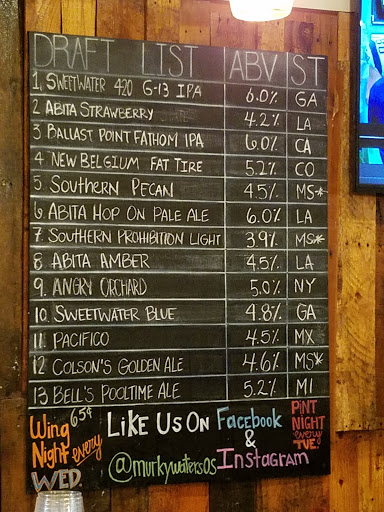 DRAFT LIST ABV ST
1. SWEETWATER 420 G-13 IPA 6.0% GA
2 ABITA STRAWBERRY 4.2% LA
3 BALLAST POINT FATHOM IPA 6.0% CA
4 NEW BELGIUM FAT TIRE 5.2% CO
5. SOUTHERN PECAN 4.5% MS*
6. ABITA HOP ON PALE ALE 6.0% LA
7. SOUTHERN PROHIBITION LIGHT 3.9% MS*
8. ABITA AMBER 4.5% LA
9. ANGRY ORCHARD 5.0% NY
10. SWEETWATER BLUE 4.8% GA
11. PACIFICO 4.5% MX
12 COLSON'S GOLDEN ALE 4.6% MS*
13 BELL'S POOLTIME ALE 5.2% MI
65¢
Wing
Night every
WED.
LIKE US ON Facebook
&
@murkywatersOS Instagram
PINT
NIGHT
every
TUE!